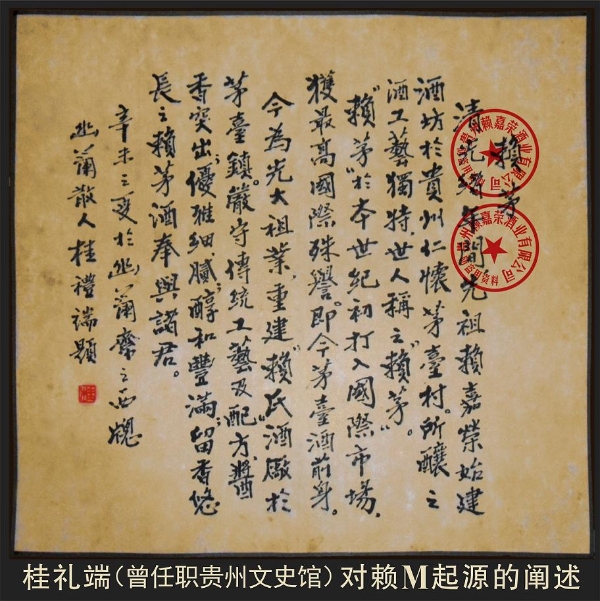 賴茅
清光緒年間,先祖賴嘉榮始建
酒坊於貴州仁懷茅臺村。所釀之
酒工藝獨特,世人稱之"賴茅"。
"賴茅"於本世紀初打入國際市場,
獲最高國際殊譽。即今茅臺酒前身。
今為光大祖業,重建"賴氏"酒廠於
茅臺鎮。嚴守傳統工藝及配方,醬
香突出;優雅細膩;醇和豐滿;留香悠
長之賴茅酒奉與諸君。
辛未之夏於幽蘭齋之西牕
幽蘭散人桂禮端題
桂礼端(曾任职贵州文史馆)对赖M起源的阐述